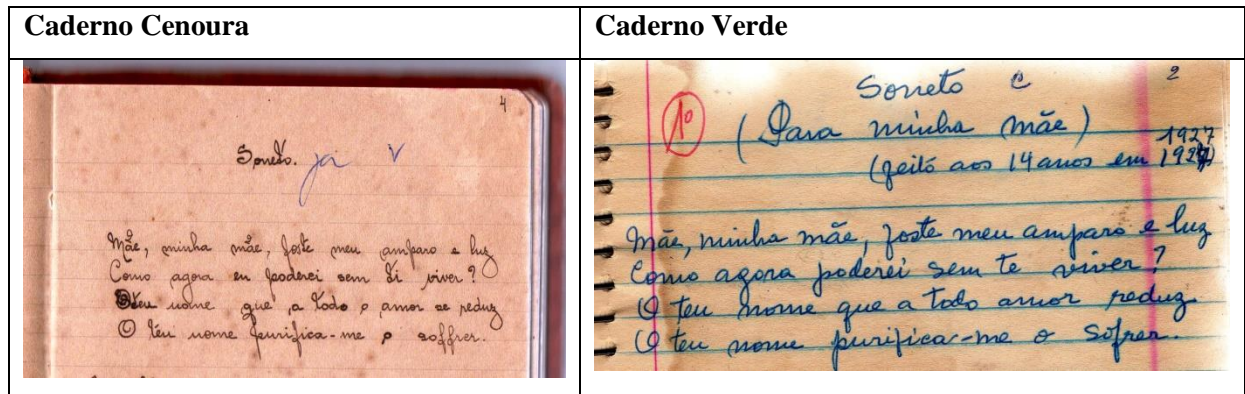 Caderno Cenoura
4
Soneto. já V
Mãe, minha mãe, foste meu amparo e luz
Como agora eu poderei sem ti viver?
O teu nome que, a todo o amor se reduz
O teu nome purifica-me o soffrer.
Caderno Verde
Soneto C 2
1º (Para minha mãe) 1927
(feito aos 14 anos em 1927)
Mãe, minha mãe, foste meu amparo e luz
Como agora poderei sem te viver?
O teu nome que a todo amor reduz
O teu nome purifica-me o sofrer.